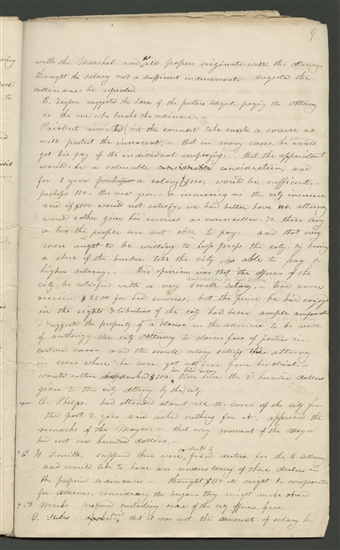 9
with the Marshal and all papers originate with the Attorney
thought the salary not a sufficient inducement. suggests the
ordinance be repealed
E. Taylor suggests the idea of the parties litigent, paying the Attorney
or the one who breaks the ordinance.
President the counsel take such a course as
will protect the innocent, & that in many cases he would
get his pay of the individual employing. that the appointment
would be a valuable consideration, and
for 1 year a salary of $100, would be sufficient,
perhaps 150. the next year, & increasing as the city increases,
and if $100 would not satisfy, we had better have no attorney
would rather give his services as counsellor &c there any
a tax the people are not able to pay. and that every
man ought to be willing to help prop the city by being
a share of the burden till the city is able to pay a
higher salary. — His opinion was that the officers of the
city be satisfied with a very small salary. — had never
received $2500 for his services. but the peace he had enjoyed
in the rights & liberties of the city had been ample
suggests the propriety of a clause in the ordinance to be made
of authorizing the city Attorney to claim fees of parties in
certain cases and the small salary satisfy the attorney
in cases where he can get no fees from his client.
would rather $100, than have the 2 hundred dollars
given to the city attorney by the city.
A. Phelps. had attended almost all the suits of the city for
the past 2 years and asked nothing for it, approved the
remarks of the Mayor — that very amount of the Mayor
had cost one hundred dollars. —
H. Smith, supposed there were fixed duties, for the C. Attorney
and would like to have an understanding of those duties in
the proposed ordinance — thought $100 be compensation
for advice, considering the buyers they might make about
Marks proposed curtailing some of the city officers, fees,
O. Pratt it was not the amount of salary he